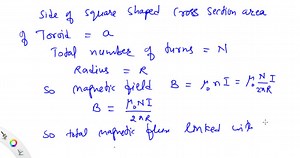 Side of Square shaped Cross Section area
of Toroid = a
Total number of turns = N
Radius = R
So magnetic field B = μ₀ n I = μ₀ N/2πR I
B = μ₀NI/2πR
So total magnetic flux linked with